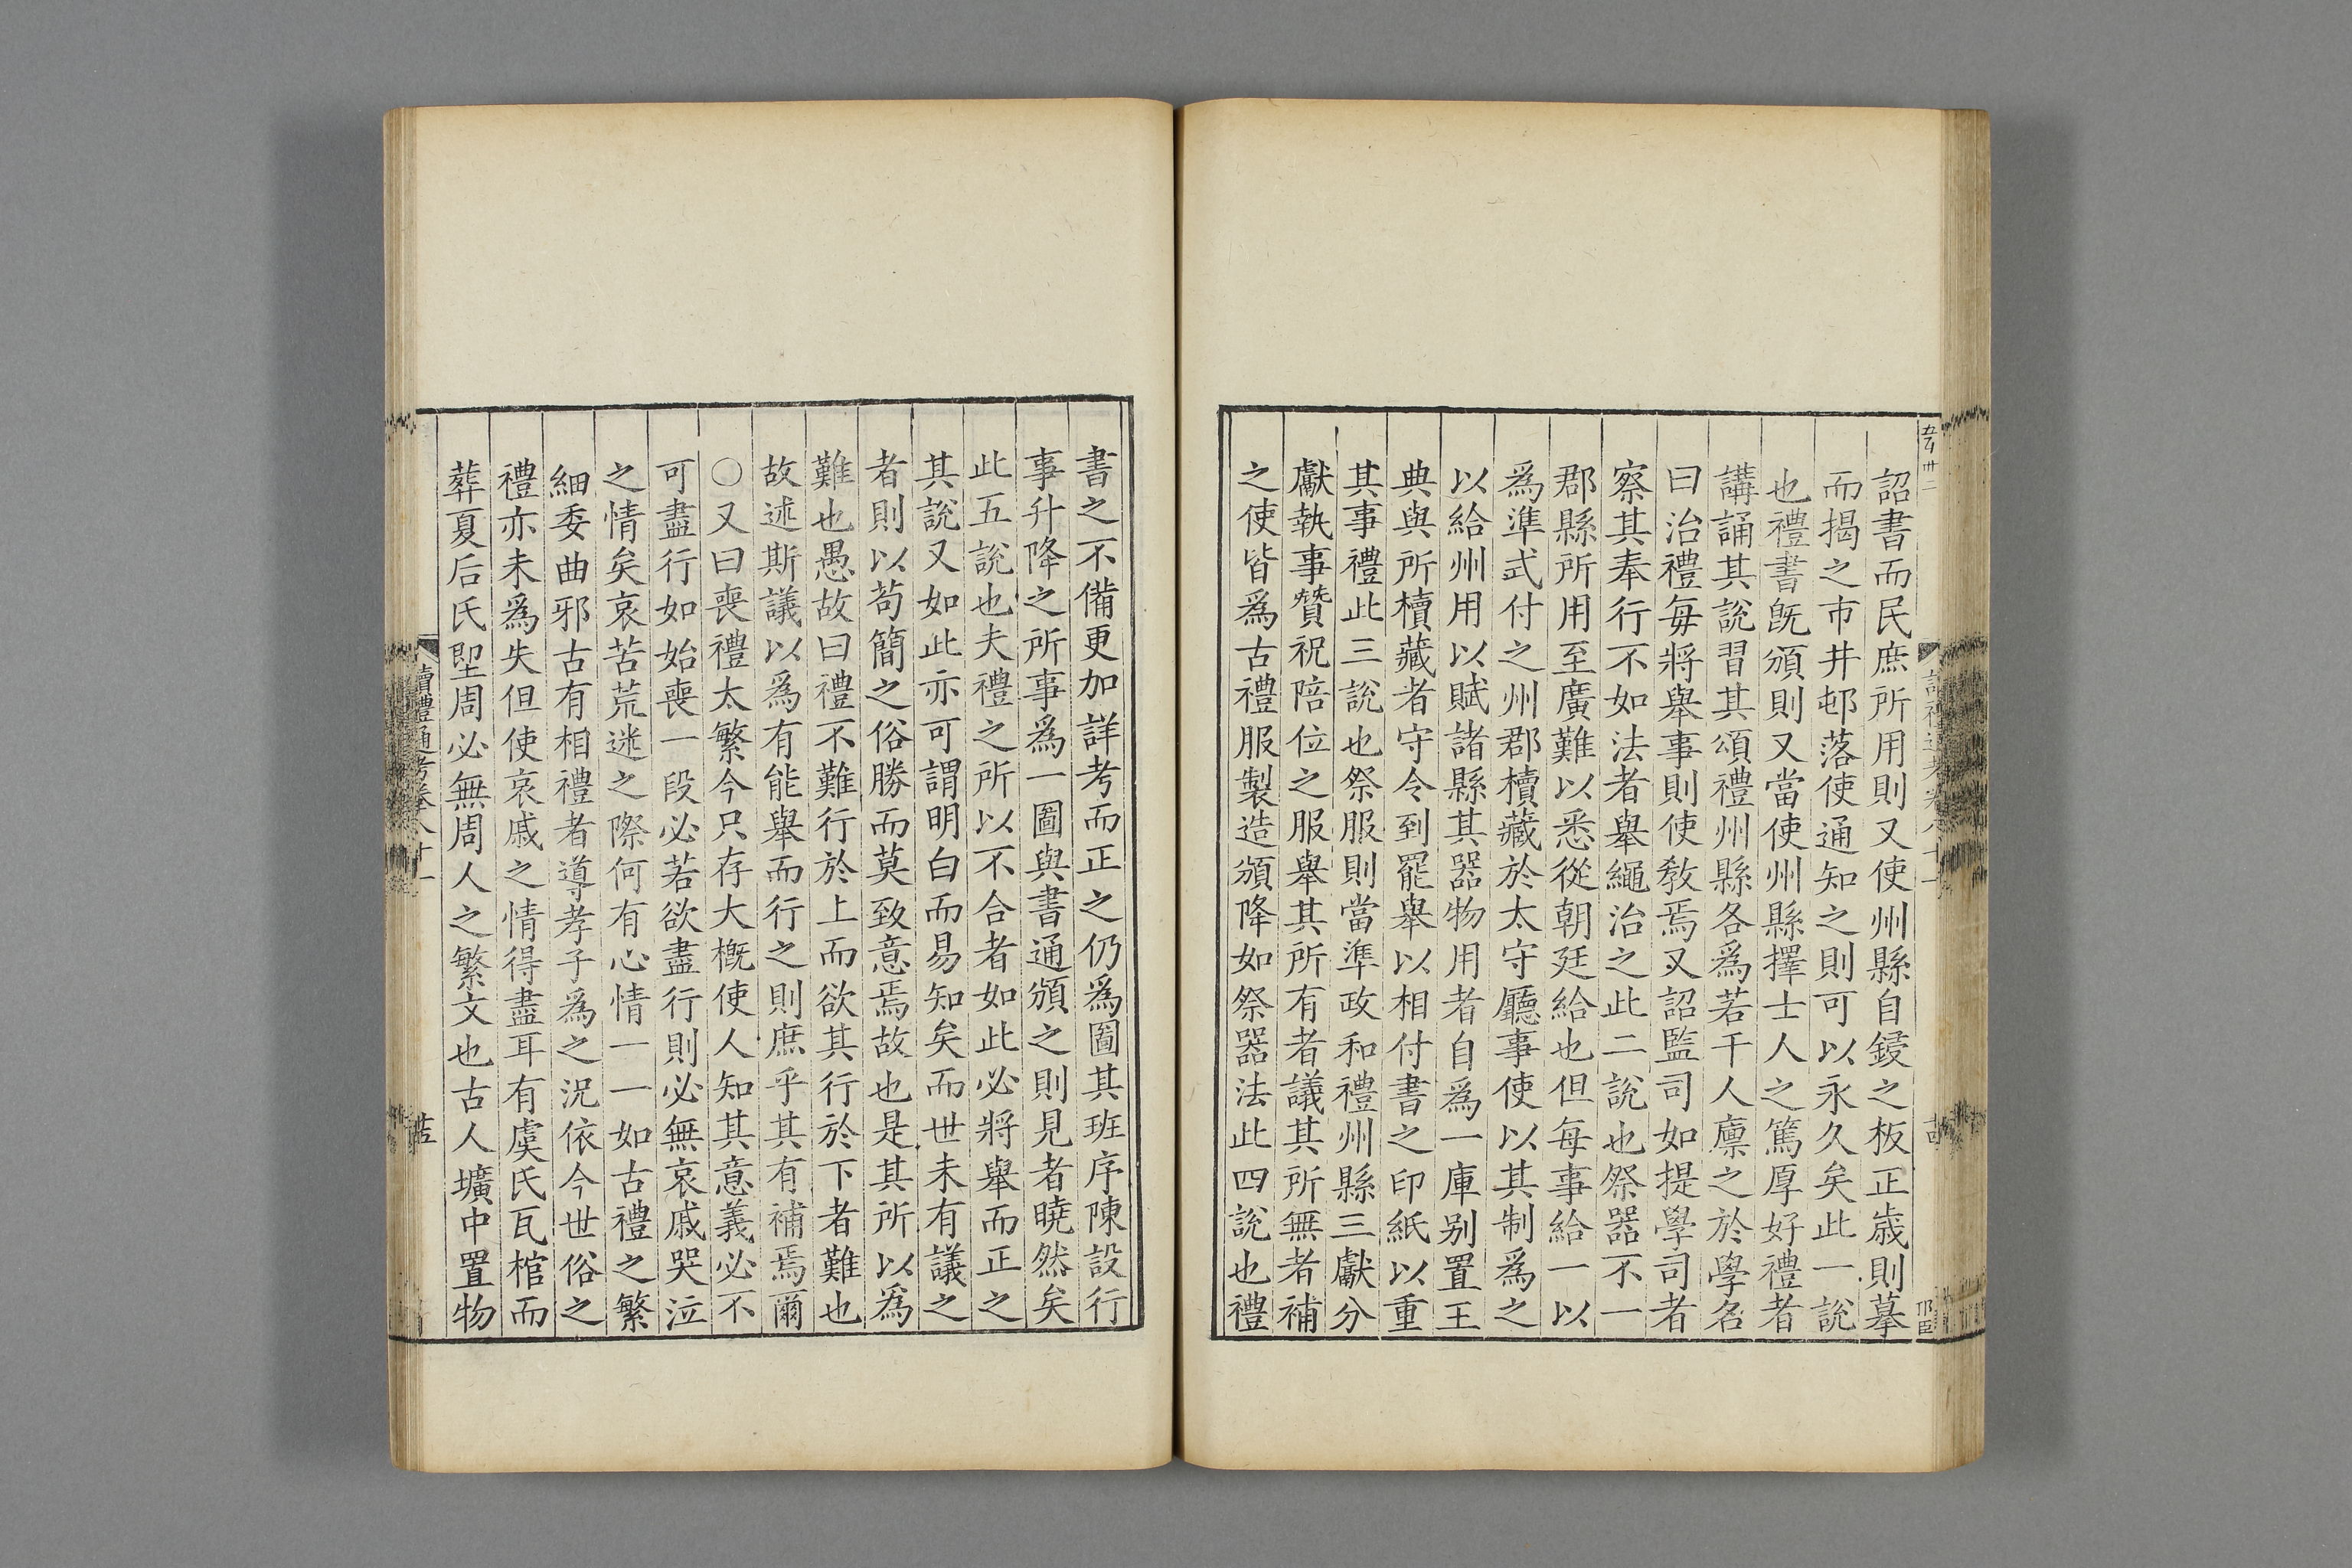 詔書而民庶所用則又使州縣自鋟之板正歲則摹
而揭之市井邨落使通知之則可以永久矣此一說
也禮書旣頒則又當使州縣擇士人之篤厚好禮者
講誦其說習其頌禮州縣各爲若干人廪之於學名
曰治禮每將舉事則使敎焉又詔監司如提學司者
察其奉行不如法者舉繩治之此二說也祭器不一
郡縣所用至廣難以悉從朝廷給也但每事給一以
爲準式付之州郡櫝藏於太守廳事使以其制爲之
以給州用以賦諸縣其器物用者自爲一庫别置王
典與所櫝藏者守令到罷舉以相付書之印紙以重
其事禮此三說也祭服則當準政和禮州縣三獻分
獻執事贊祝陪位之服舉其所有者議其所無者補
之使皆爲古禮服製造頒降如祭器法此四說也禮
書之不備更加詳考而正之仍爲圖其班序陳設行
事升降之所事爲一圖與書通頒之則見者曉然矣
此五說也夫禮之所以不合者如此必將舉而正之
其說又如此亦可謂明白而易知矣而世未有議之
者則以苟簡之俗勝而莫致意焉故也是其所以爲
難也愚故曰禮不難行於上而欲其行於下者難也
故述斯議以爲有能舉而行之則庶乎其有補焉爾
〇又曰喪禮太繁今只存大槪使人知其意義必不
可盡行如始喪一段必若欲盡行則必無哀戚哭泣
之情矣哀苦荒迷之際何有心情一一如古禮之繁
細委曲邪古有相禮者導孝子爲之況依今世俗之
禮亦未爲失但使哀戚之情得盡耳有虞氏瓦棺而
葬夏后氏堲周必無周人之繁文也古人壙中置物
讀禮通考卷八十一